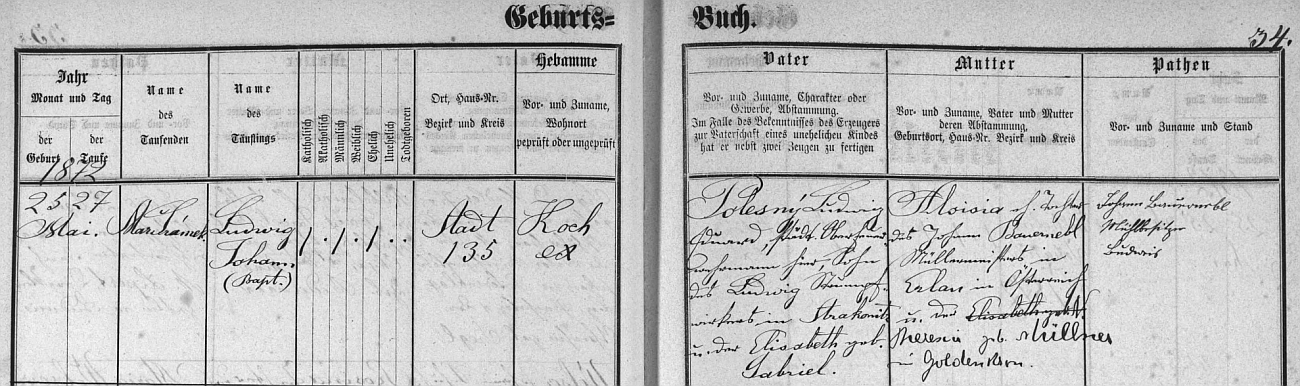 Geburts=
Buch.
34.
Jahr
Monat und Tag
der Geburt
der Taufe
Name
des
Taufenden
Name
des
Täuflings
Katholisch
Akatholisch
Männlich
Weiblich
Ehelich
Unehelich
Todtgeboren
Ort, Haus-Nr.
Bezirk und Kreis
Hebamme
Vor- und Zuname,
Wohnort
geprüft oder ungeprüft
Vater
Vor- und Zuname, Charakter oder
Gewerbe, Abstammung.
Im Falle des Bekenntnisses des Erzeugers
zur Vaterschaft eines unehelichen Kindes
hat er nebst zwei Zeugen zu fertigen
Mutter
Vor- und Zuname, Vater und Mutter
deren Abstammung,
Geburtsort, Haus-Nr. Bezirk und Kreis
Pathen
Vor- und Zuname und Stand
1872
25 27
Mai.
Ludwig
Johann
(Bapt.)
1 . 1 . 1 . .
Stadt
135
Koch
ex
Polesný Ludwig
Eduard, städt. Oberfeuer-
wehrmann hier, Sohn
des Ludwig Strumpf-
wirkers in Strakonitz
u. der Elisabeth geb.
Gabriel.
Aloisia eh. Tochter
des Johann
Müllermeisters in
Erlau in Österreich
u. der Elisabeth geb.
Theresia geb. Müllner
in Goldenkron.
Johann
Mühlbesitzer
Budweis